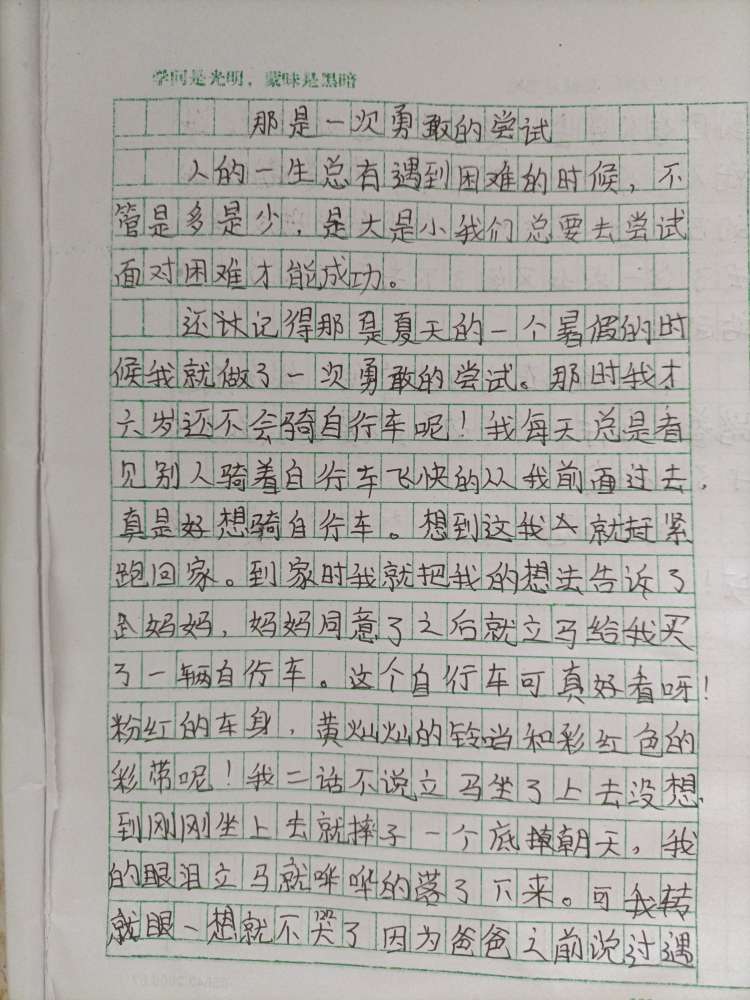 学问是光明，蒙昧是黑暗
那是一次勇敢的尝试
人的一生总有遇到困难的时候，不
管是多是少，是大是小我们总要去尝试
面对困难才能成功。
还记得那是夏天的一个暑假的时
候我就做了一次勇敢的尝试。那时我才
六岁还不会骑自行车呢！我每天总是看
见别人骑着自行车飞快的从我前面过去，
真是好想骑自行车。想到这我就赶紧
跑回家。到家时我就把我的想法告诉了
妈妈，妈妈同意了之后就立马给我买
了一辆自行车。这个自行车可真好看呀！
粉红的车身，黄灿灿的铃铛和彩红色的
彩带呢！我二话不说立马坐了上去没想
到刚刚坐上去就摔了一个底朝天，我
的眼泪立马就哗哗的落了下来。可我转
眼一想就不哭了因为爸爸之前说过遇